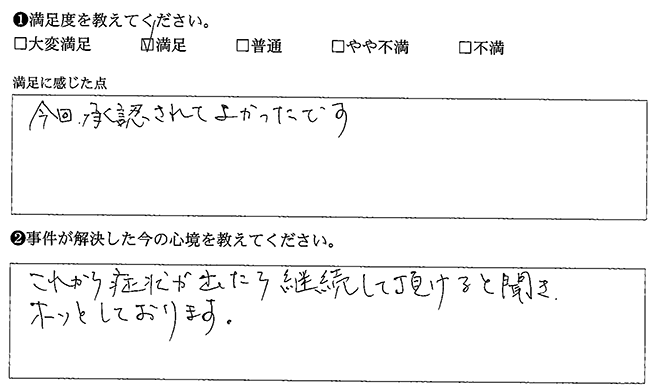 ❶満足度を教えてください。
□大変満足 ☑満足 □普通 □やや不満 □不満
満足に感じた点
今回、承認されてよかったです
❷事件が解決した今の心境を教えてください。
これから症状が出たら継続して頂けると聞き、
ホッとしております。